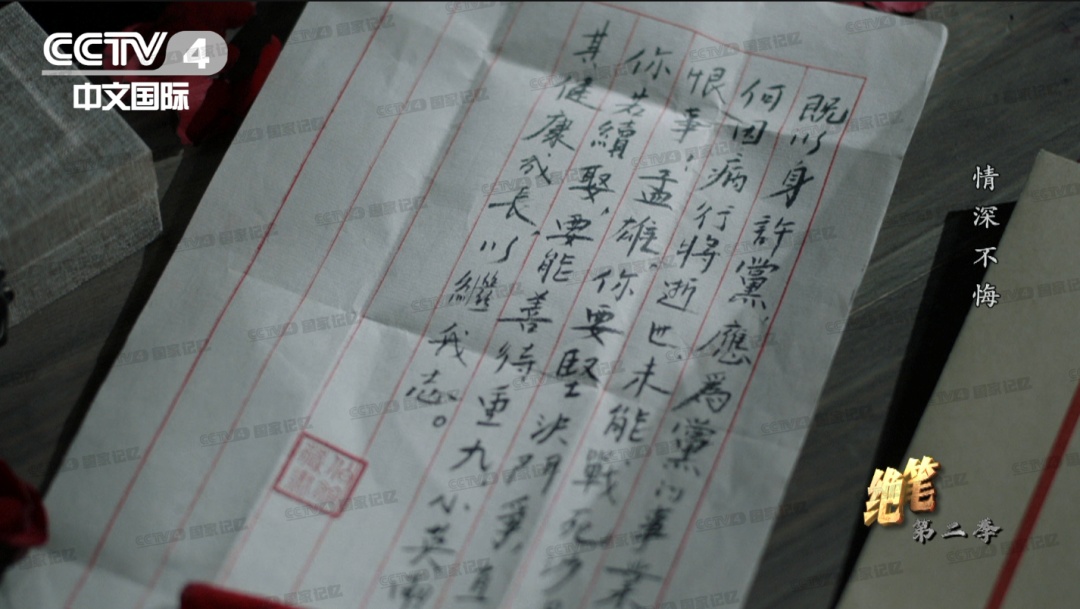 CCTV 4
中文国际
既以身許黨,應爲黨的事業
何因病行將逝世,未能戰死
恨事。孟雄,你要堅決鬥爭,直
你若續娶,要能善待重九、小英
其健康成長,以繼我志。
情深不悔
绝笔
第二季
CCTV 4 国家记忆